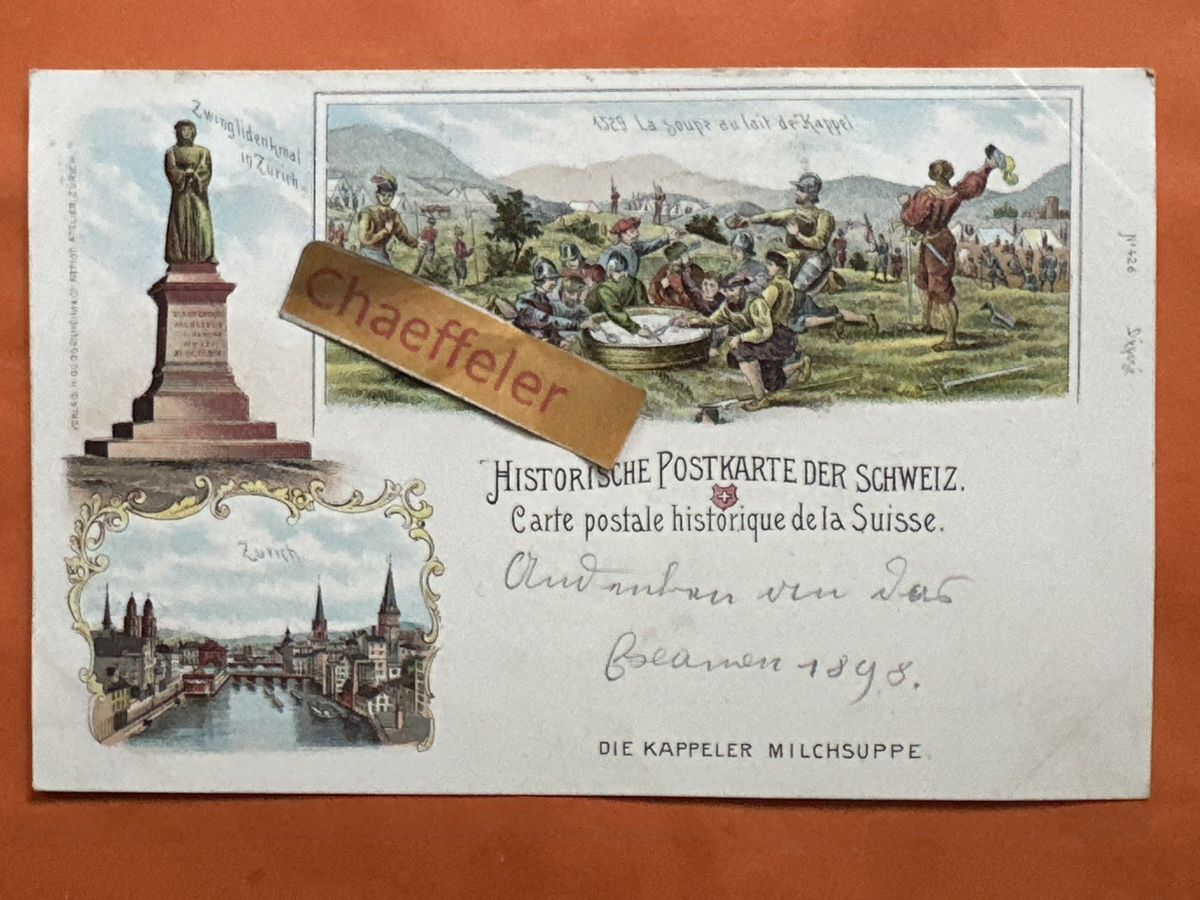 Zwinglidenkmal
in Zürich.
1529 La soupe au lait de Kappel
Chaeffeler
No 426
HISTORISCHE POSTKARTE DER SCHWEIZ.
Carte postale historique de la Suisse.
Zürich
Andenken an das
Examen 1898.
DIE KAPPELER MILCHSUPPE.